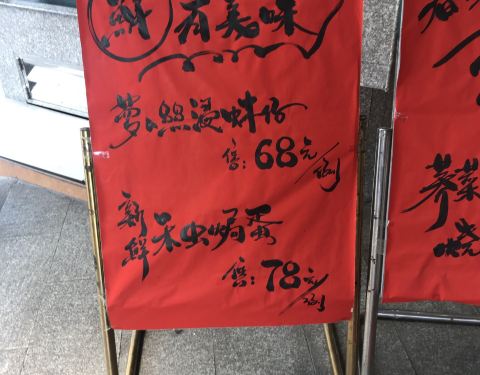 鮮有美味
萝卜絲浸蚌仔
售:68元/例
新鮮禾虫焗蛋
售:78元/例
菜
燒